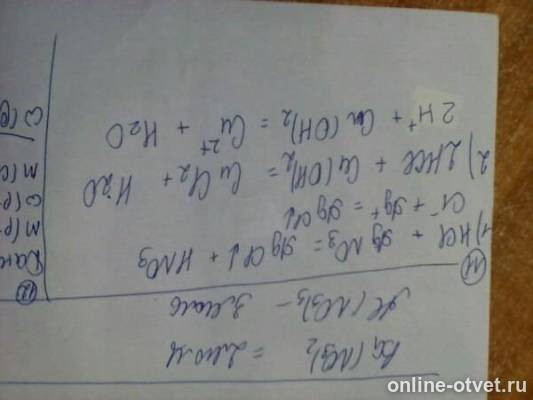 Ba(NO₃)₂ = 2 моль
Al(NO₃)₃ – 3 моль
11
1) HCl + AgNO₃ = AgCl↓ + HNO₃
Cl⁻ + Ag⁺ = AgCl↓
2) 2HCl + Cu(OH)₂ = CuCl₂ + H₂O
2H⁺ + Cu(OH)₂ = Cu²⁺ + H₂O
12
m(р-
ω(р-
online-otvet.ru